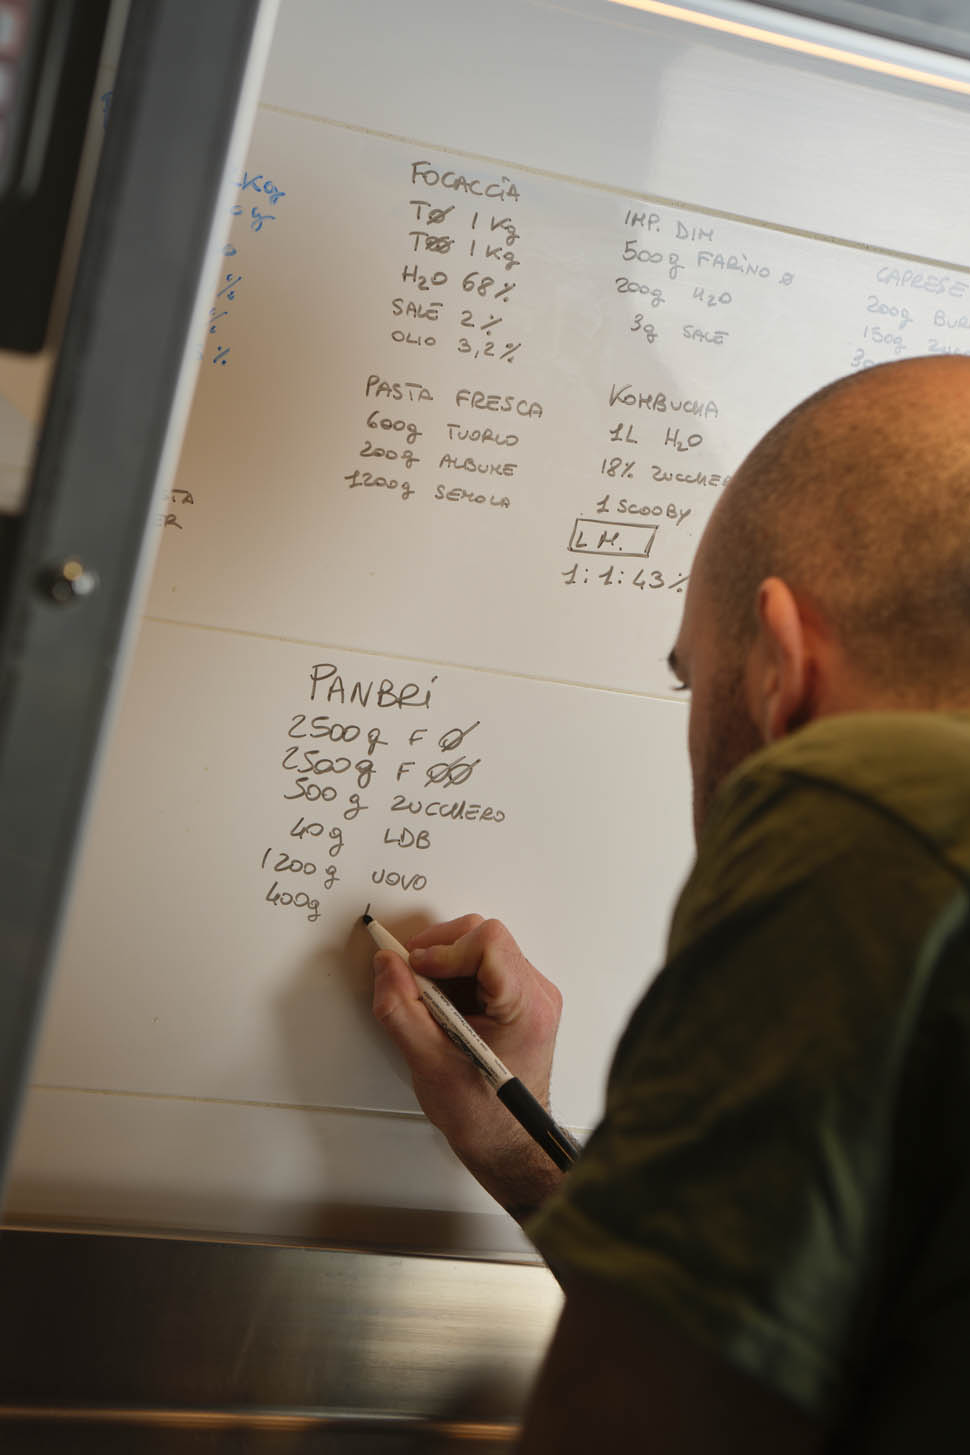 FOCACCIA
TØ 1 Kg
TØØ 1 Kg
H₂O 68%
SALE 2%
OLIO 3,2%
PASTA FRESCA
600g TUORLO
200g ALBUME
1200g SEMOLA
IMP. DIM
500g FARINO Ø
200g H₂O
3g SALE
KOMBUCHA
1L H₂O
18% ZUCCHE
1 SCOOBY
L M.
1:1:43%
CAPRESE
200g BUR
150g ZU
PANBRI
2500g F Ø
2500g F ØØ
500g ZUCCHERO
40g LDB
1200g UOVO
400g